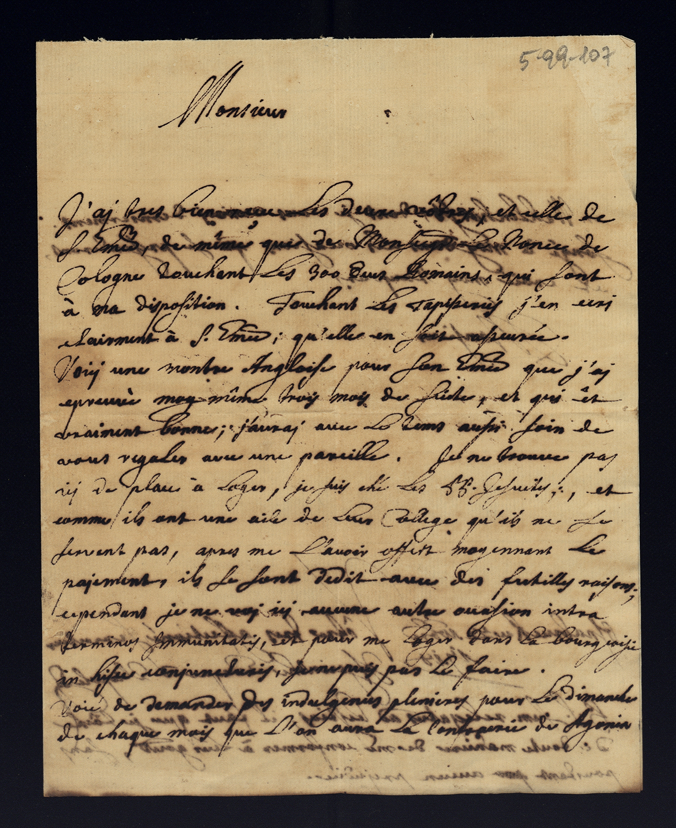 5-99-107
Monsieur
J'aj tres bien receu Les deux vôtres, et celle de
S. Emce, de même que de Monseigr Le Nonce de
Cologne touchant Les 300 Romains, qui sont
à ma disposition. Touchant Les Tapisseries j'en ecri
clairment à S. Emce; qu'elle en soit asseurée.
Voij une montre Angloise pour Son Emce que j'aj
epreuvée moy même trois mois de suite, et qui êt
vraiment bonne; j'auraj avec Le tems aussi soin de
vous regaler avec une pareille. Je ne trouve pas
icj de place à Loger, je suis ché Les PP. Jesuites, et
comme ils ont une aile de Leur College qu'ils ne se
servent pas, apres me L'avoir offert moyennant Le
pajement, ils se sont dedit avec des futilles raisons;
cependant je ne voj icj aucune autre occasion intra
terminos Immunitatis, et pour me Loger dans La bourgeoisie
in hisce conjuncturis, je ne puis pas Le faire.
de demander des indulgences plenieres pour Le dimanche
de chaque mois que L'on aura La Confrerie de Agonia